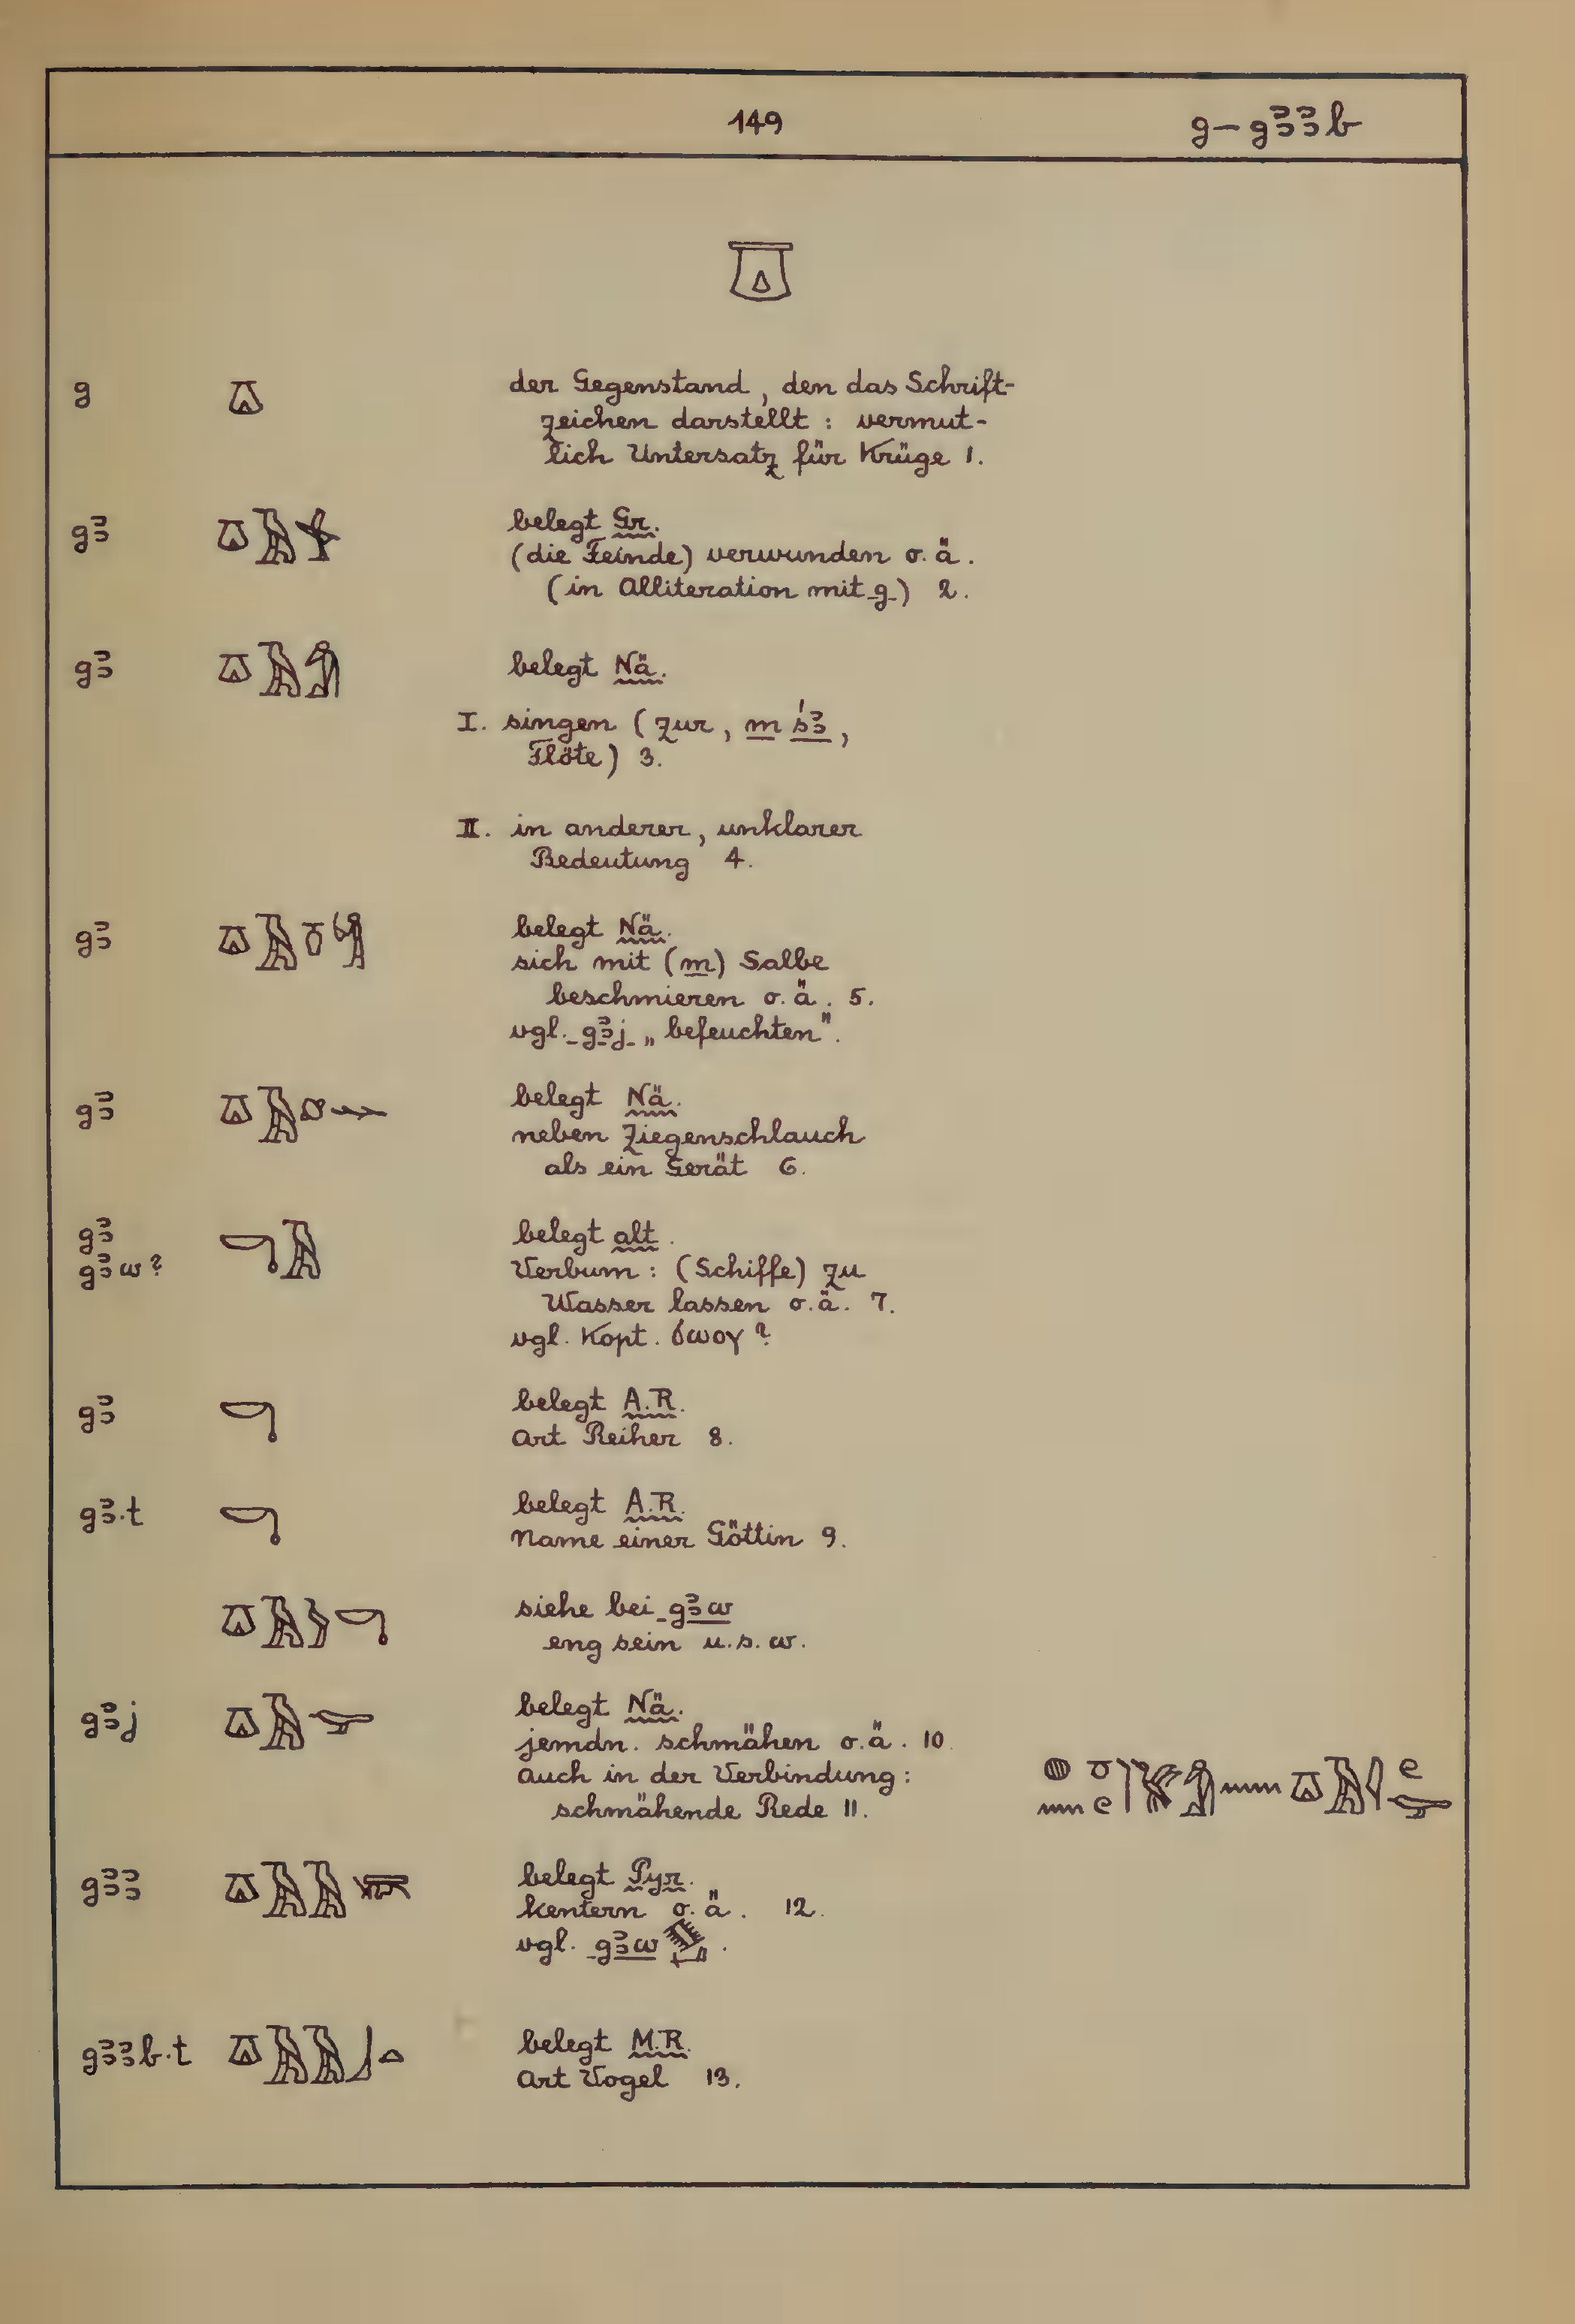 149
g – gꜣꜣb
g
der Gegenstand, den das Schrift-
zeichen darstellt: vermut-
lich Untersatz für Krüge 1.
gꜣ
belegt Gr.
(die Feinde) verwunden o. ä.
(in Alliteration mit g) 2.
gꜣ
belegt Nä.
I. singen (zur, m śꜣ,
Flöte) 3.
II. in anderer, unklarer
Bedeutung 4.
gꜣ
belegt Nä.
sich mit (m) Salbe
beschmieren o. ä. 5.
vgl. gꜣj „befeuchten".
gꜣ
belegt Nä.
neben Ziegenschlauch
als ein Gerät 6.
gꜣ
gꜣw?
belegt alt.
Verbum: (Schiffe) zu
Wasser lassen o. ä. 7.
vgl. Kopt. ϭⲱⲟⲩ?
gꜣ
belegt A.R.
Art Reiher 8.
gꜣ.t
belegt A.R.
Name einer Göttin 9.
siehe bei gꜣw
eng sein u.s.w.
gꜣj
belegt Nä.
jemdn. schmähen o. ä. 10.
auch in der Verbindung:
schmähende Rede 11.
gꜣꜣ
belegt Pyr.
kentern o. ä. 12.
vgl. gꜣw
gꜣꜣb.t
belegt M.R.
Art Vogel 13.